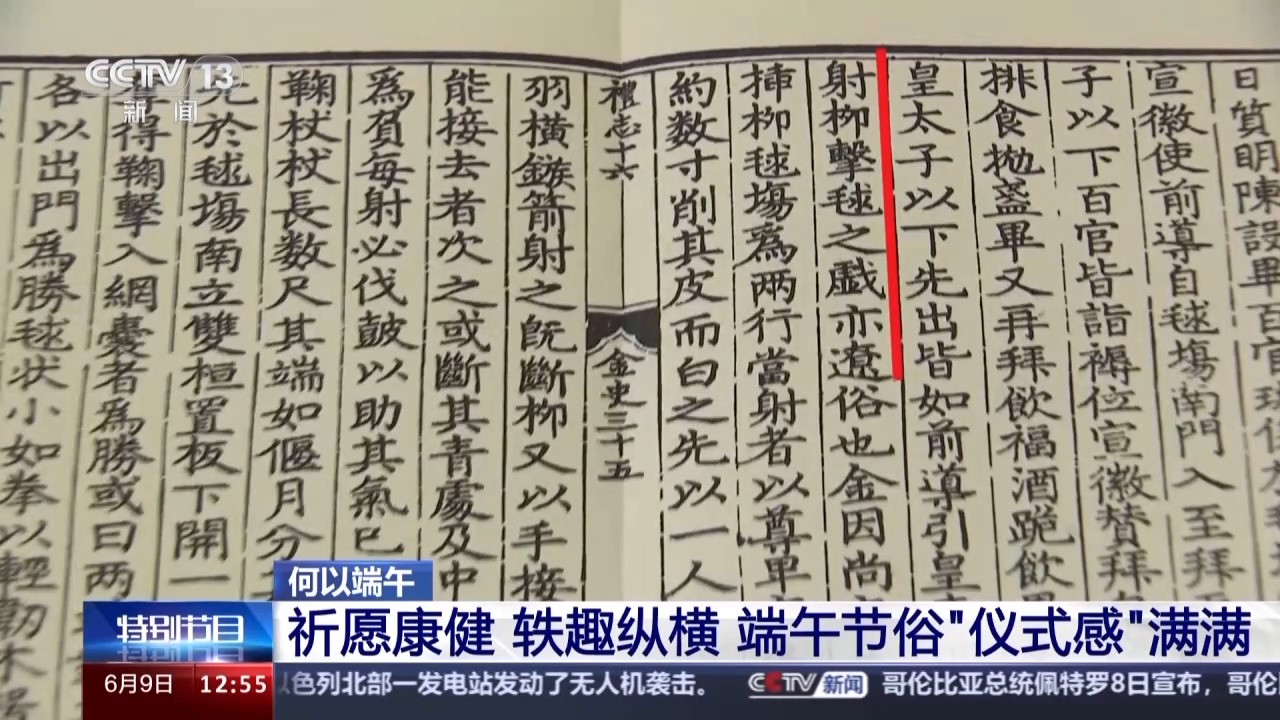 CCTV 13
新闻
日質明陳設畢百官
宣徽使前導自毬場南門入至拜
子以下百官皆詣褥位宣徽贊拜
排食抛盞畢又再拜飲福酒跪飲
皇太子以下先出皆如前導引皇
射柳擊毬之戲亦遼俗也金因尚
揷柳毬場爲兩行當射者以尊卑
約数寸削其皮而白之先以一人
禮志十六
金史三十五
羽橫鏃箭射之旣斷柳又以手接
能接去者次之或斷其青處及中
爲負每射必伐鼓以助其氣已
鞠杖杖長数尺其端如偃月分
先於毬場南立雙桓置板下開一
得鞠擊入網囊者爲勝或曰两
各以出門爲勝毬状小如拳以輕韌木
何以端午
特别节目
祈愿康健 轶趣纵横 端午节俗"仪式感"满满
6月9日 12:55
以色列北部一发电站发动了无人机袭击。 CCTV新闻 哥伦比亚总统佩特罗8日宣布，哥伦